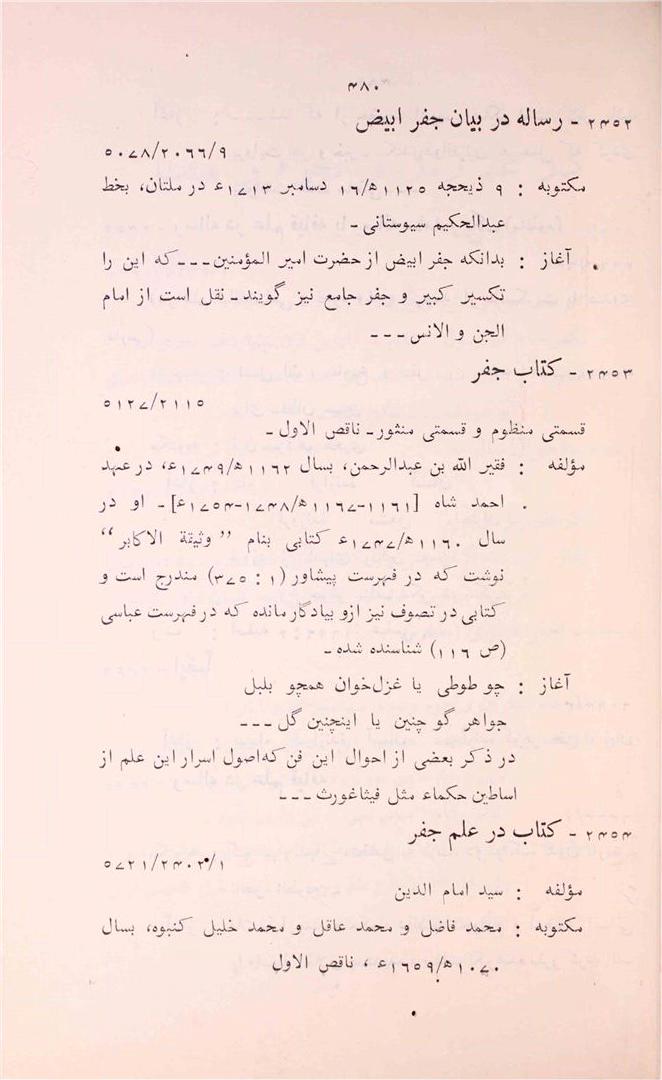 ۴۸۰
۲۴۵۲ - رساله در بیان جفر ابیض
۵۰۷۸/۲۰۶۶/۹
مکتوبه : ۹ ذیحجه ۱۱۲۵ھ/۱۶ دسامبر ۱۷۱۳ء در ملتان، بخط
عبدالحکیم سیوستانی ـ
آغاز : بدانکه جفر ابیض از حضرت امیر المؤمنین ـ ـ ـ که این را
تکسیر کبیر و جفر جامع نیز گویند ـ نقل است از امام
الجن و الانس ـ ـ ـ
۲۴۵۳ - کتاب جفر
۵۱۲۷/۲۱۱۵
قسمتی منظوم و قسمتی منثور ـ ناقص الاول ـ
مؤلفه : فقیر الله بن عبدالرحمن، بسال ۱۱۶۲ھ/۱۷۴۹ء، در عهد
احمد شاه [۱۱۶۱-۱۱۶۷ھ/۱۷۴۸-۱۷۵۴ء] ـ او در
سال ۱۱۶۰ھ/۱۷۴۷ء کتابی بنام ”وثیقة الاکابر“
نوشت که در فهرست پیشاور (۱ : ۳۷۵) مندرج است و
کتابی در تصوف نیز ازو بیادگار مانده که در فهرست عباسی
(ص ۱۱۶) شناسنده شده ـ
آغاز : چو طوطی یا غزل‌خوان همچو بلبل
جواهر گو چنین یا اینچنین گل ـ ـ ـ
در ذکر بعضی از احوال این فن که‌اصول اسرار این علم از
اساطین حکماء مثل فیثاغورث ـ ـ ـ
۲۴۵۴ - کتاب در علم جفر
۵۷۲۱/۲۴۰۲/۱
مؤلفه : سید امام الدین
مکتوبه : محمد فاضل و محمد عاقل و محمد خلیل کنبوه، بسال
۱۰۷۰ھ/۱۶۵۹ء ، ناقص الاول